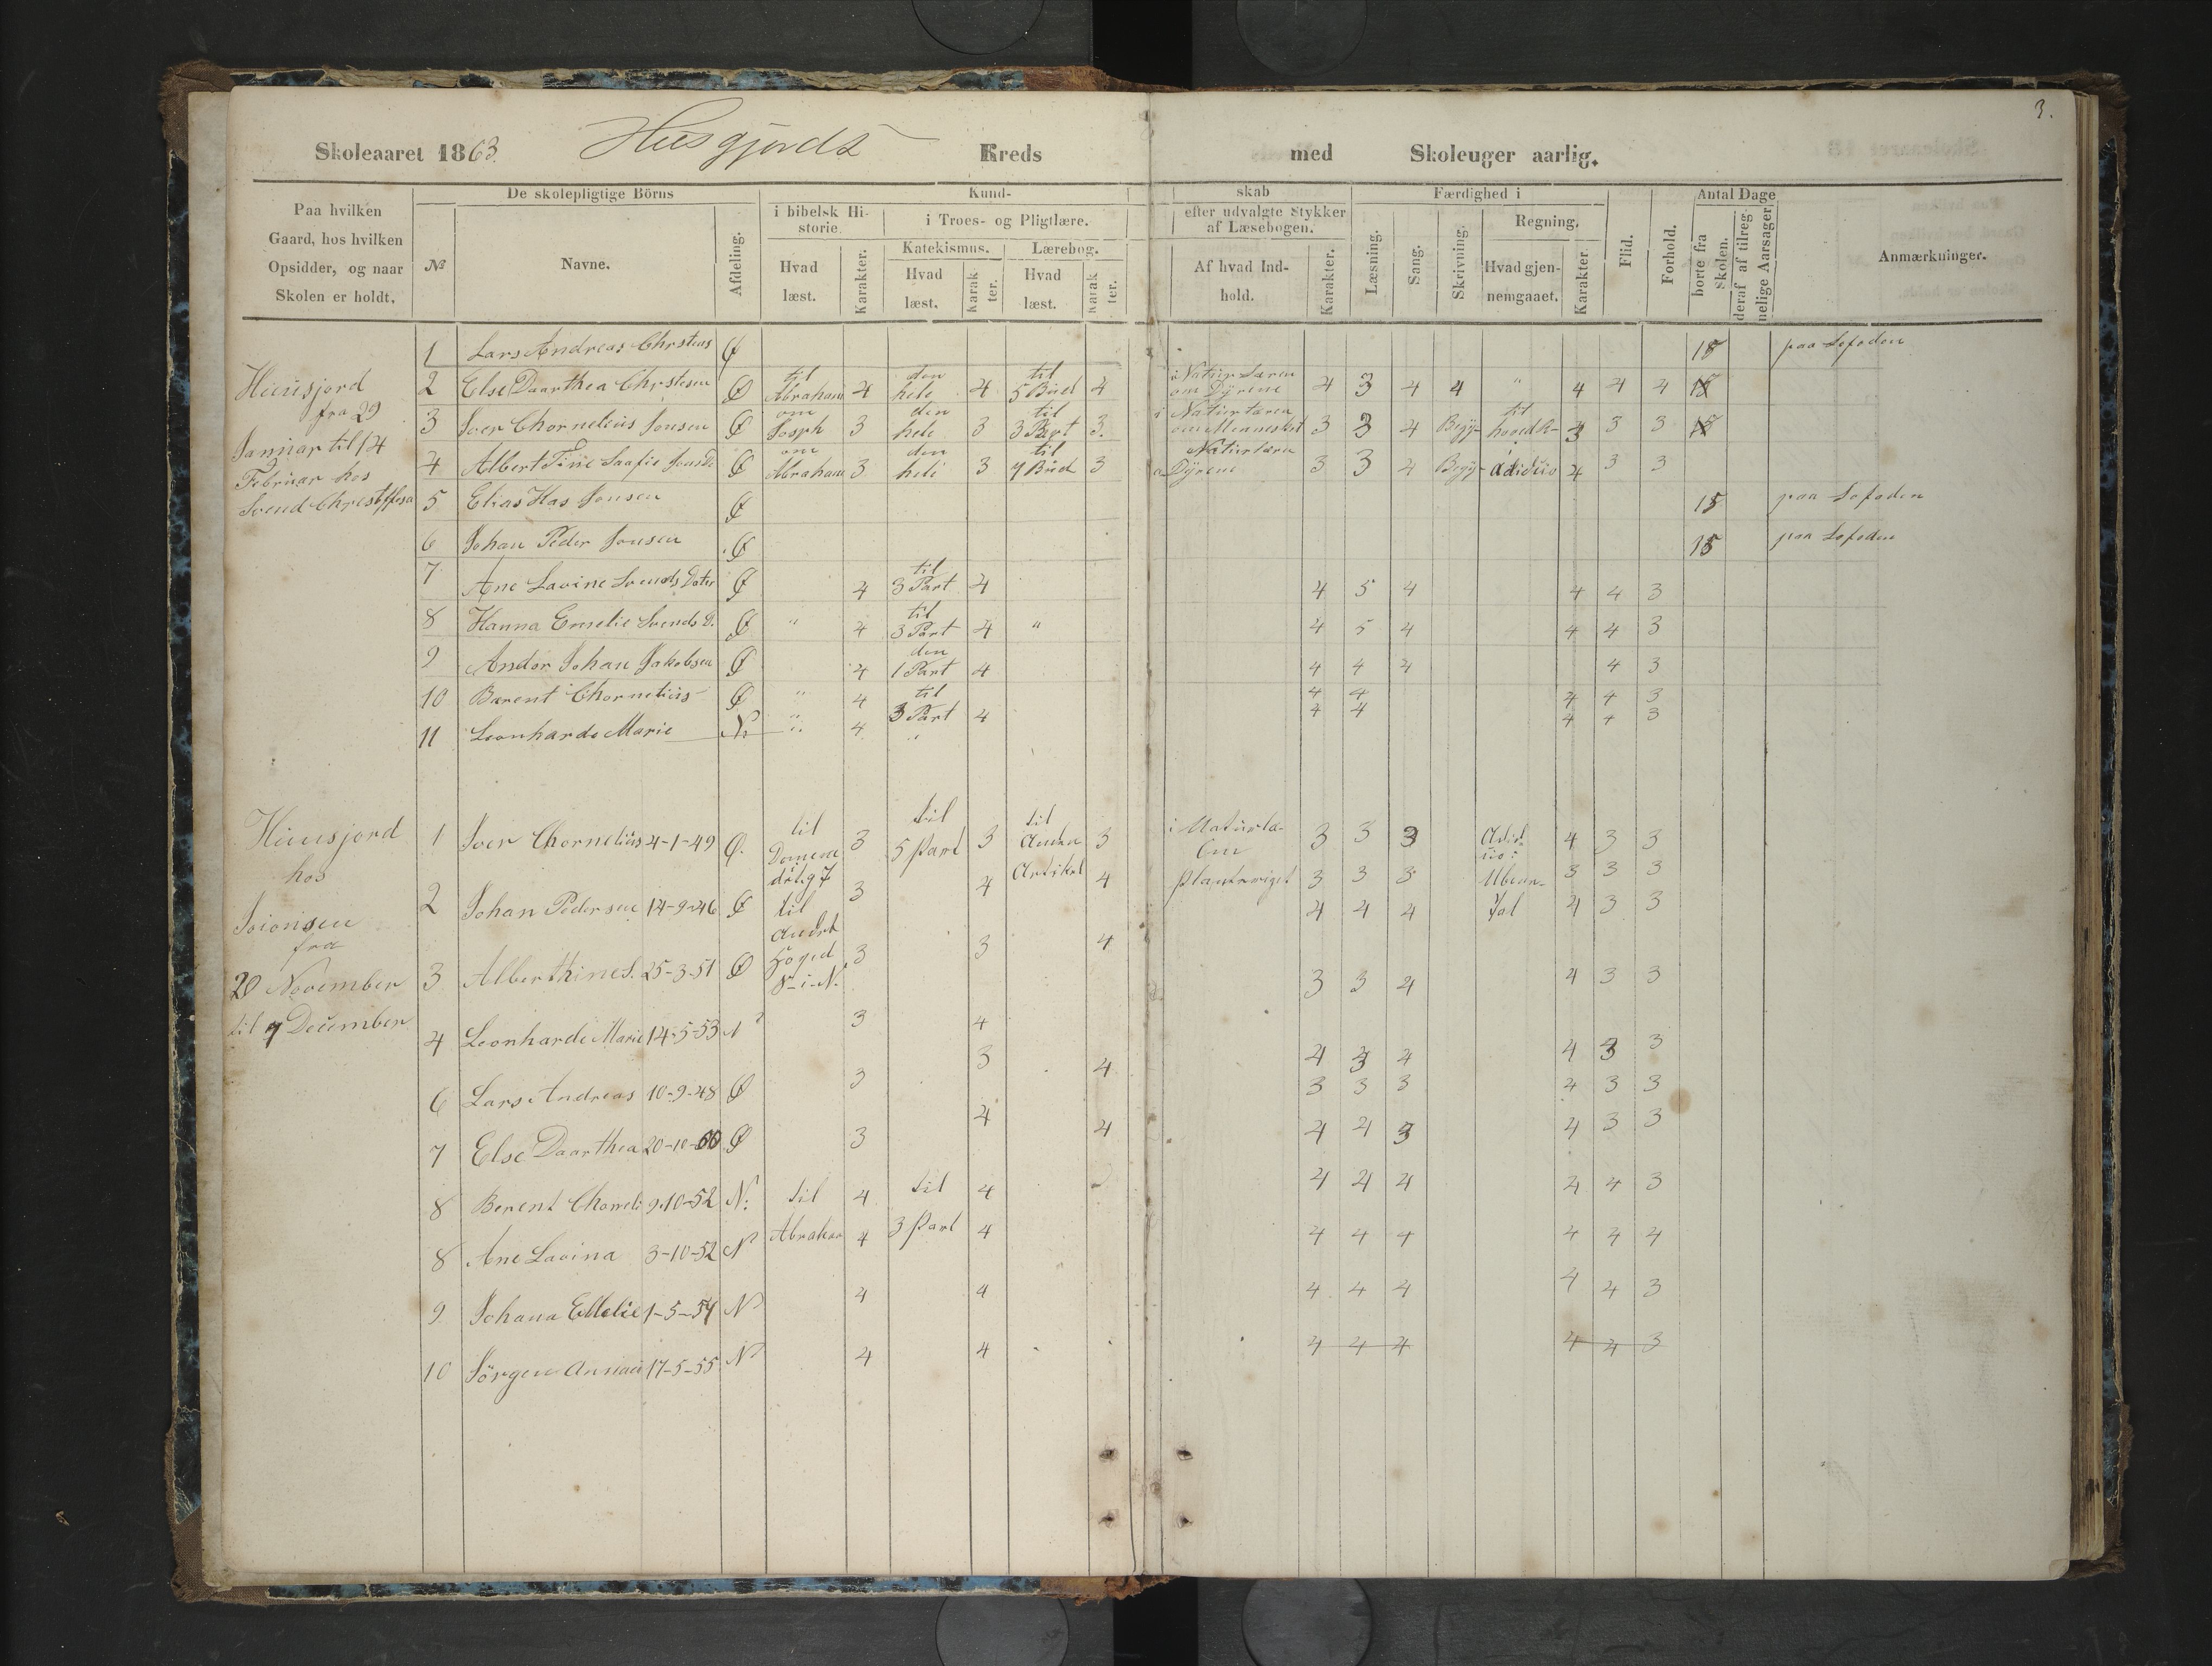 3.
Skoleaaret 1863. Husgjords Kreds med Skoleuger aarlig.
Paa hvilken Gaard, hos hvilken Opsidder, og naar Skolen er holdt.
De skolepligtige Börns
№ Navne. Afdeling.
Kund-
i bibelsk Historie.
Hvad læst. Karakter.
i Troes- og Pligtlære.
Katekismus. Lærebog.
Hvad læst. Karakter. Hvad læst. Karakter.
skab
efter udvalgte Stykker af Læsebogen.
Af hvad Indhold. Karakter.
Færdighed i
Læsning. Sang. Skrivning. Regning.
Hvad gjennemgaaet. Karakter.
Flid. Forhold.
Antal Dage
borte fra Skolen. deraf af tilregnelige Aarsager
Anmærkninger.
Huusjord
fra 29
Januar til 14
Februar hos
1 Lars Andreas Chrstens Ø 15 paa Lofoden
2 Else Daarthea Chrstesen Ø til Abraham 4 den hele 4 til 5 Bud 4 i Natur Læren om Dyrene 4 3 4 4 " 4 4 4 15
3 Iver Chornelius Jonsen Ø om Josph 3 den hele 3 til 3 Part 3. i Naturlæren om Mennesket 3 3 4 Begy- til hoved R- 3 3 3 15
4 Albert Tine Saafie Ø om Abraham 3 den hele 3 til 4 Bud 3 Naturlæren Dyrene 3 3 4 Begy- Adidtio 4 3 3
5 Elias Has Jonsen Ø 15 paa Lofoden
6 Johan Peder Jonsen Ø 15 paa Lofoden
7 Ane Lavine Svends Dater Ø 4 til 3 Part 4 4 5 4 4 4 3
8 Hanna Emelie Svends D. Ø " 4 til 3 Part 4 " 4 5 4 4 4 3
9 Andor Johan Jakobsen Ø 4 den 1 Part 4 4 4 4 4 3
10 Barent Chornelius Ø " 4 til 3 Part 4 4 4 4 4 3
11 Leonharde Marie N " 4 " 4 4 4 4 3
Huusjord
hos
fra
20 November
til 7 December
1 Iver Chornelius 4-1-49 Ø. til 3 til 5 Part 3 til Anden Artikel 3 i Naturlæ- Om Planteriget 3 3 3 Adid 4 3 3
2 Johan Pedersen 14-9-46 Ø til Andet 3 4 4 3 3 3 Ubenæv- Tal 3 3 3
4 4 4 4 3 3
3 Alberthine S. 25-3-51 Ø 3 3 4 3 3 4 4 3 3
4 Leonharde Marie 14-5-53 N 3 4 4 3 4 4 3 3
6 Lars Andreas 10-9-48 Ø 3 3 4 3 3 3 4 3 3
7 Else Daarthea 20-10-50 Ø 3 4 4 4 4 3 4 3 3
8 Berent Chorneli 9-10-52 N. til 4 til 4 4 4 4 4 4 3
8 Ane Lavina 3-10-52 N Abraham 4 3 Part 4 4 4 4 4 4 4
9 Johana Emelie 1-5-54 N 4 4 4 4 4 4 4 3
10 Jörgen 17-5-55 N 4 4 4 4 4 4 4 3